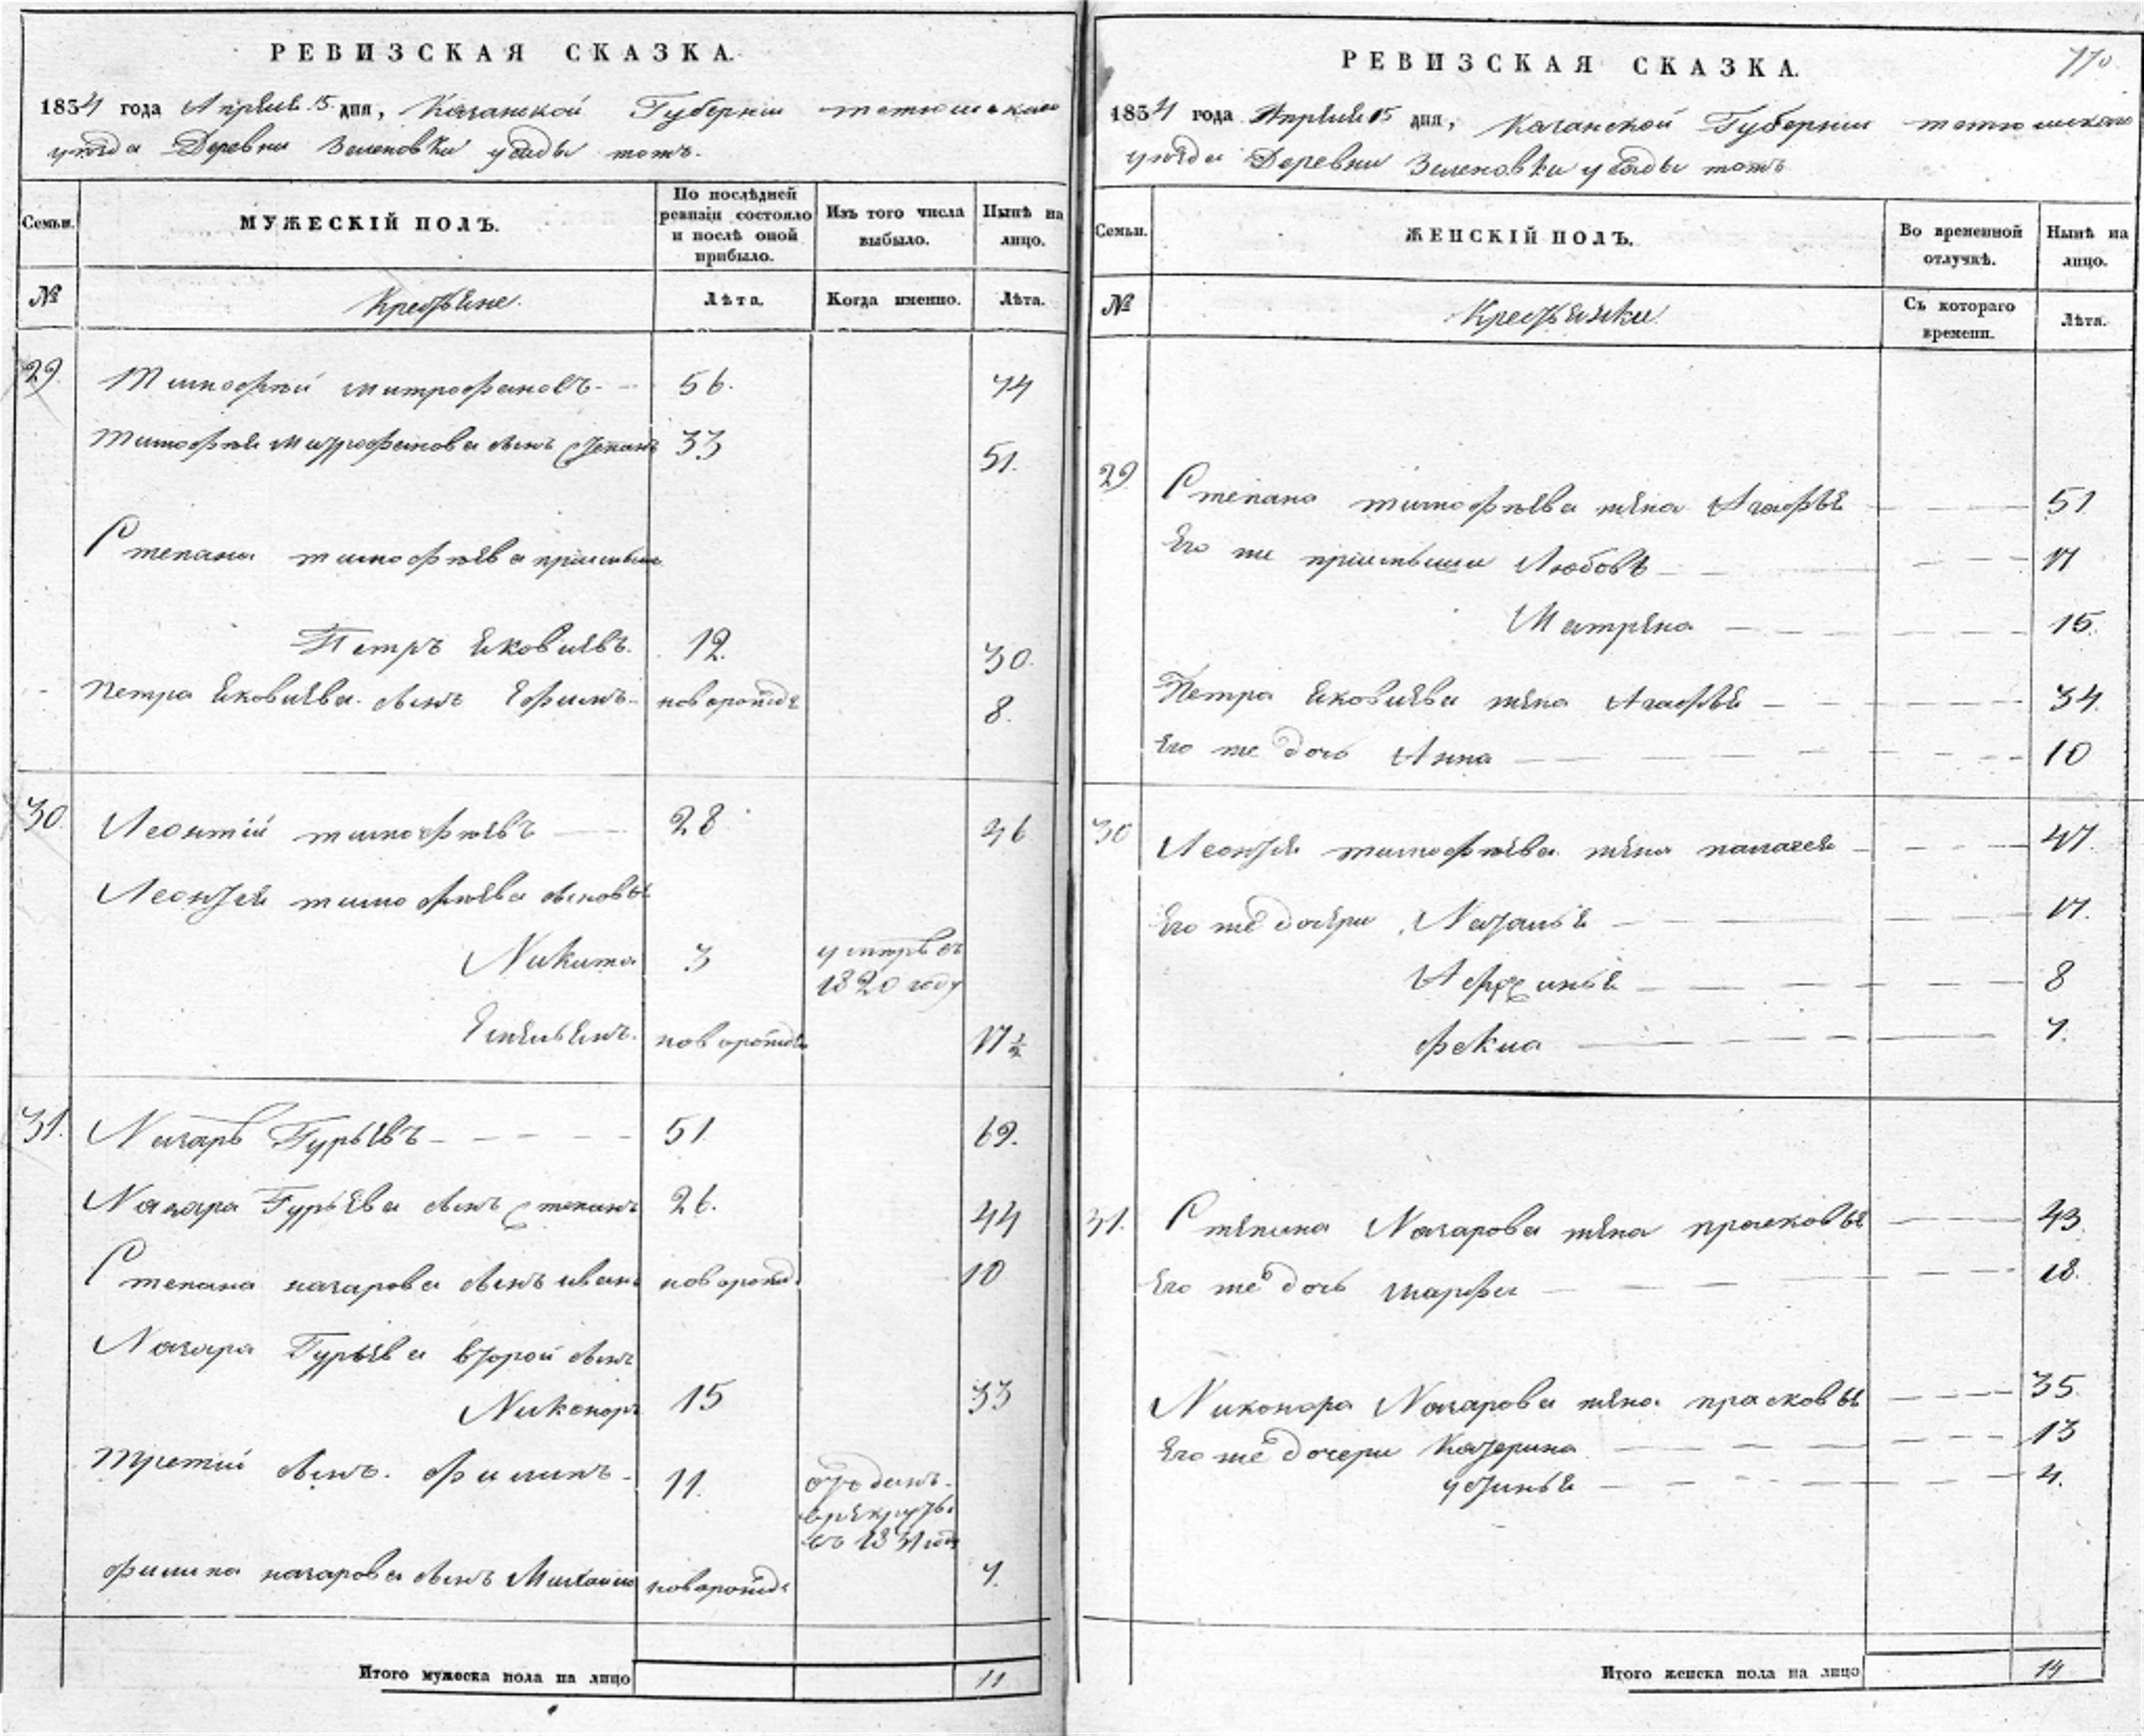 РЕВИЗСКАЯ СКАЗКА.
1834 года Апреля 15 дня, Казанской Губернии тетюшскаго
уезда Деревни Зеленовки
МУЖЕСКІЙ ПОЛЪ.
Семьи.
По послѣдней ревизіи состояло и послѣ оной прибыло.
Изъ того числа выбыло.
Нынѣ на лицо.
№
Крестьяне.
Лѣта.
Когда именно.
Лѣта.
29. Тимофѣй митрофановъ 56. 74
Тимофѣя митрофанова сынъ степанъ 33 51.
Степана тимофѣева приимышъ
Петръ Яковлевъ. 12. 30.
Петра Яковлева сынъ Ефимъ новорожд 8.
30. Леонтій тимофѣевъ 28 46
Леонтья тимофѣева сыновья
Никита 3 умръ въ 1820 году
Емельянъ. новорожде 17 1/2
31. Назаръ Гурьевъ 51 69.
Назара Гурьева сынъ степанъ 26. 44
Степана назарова сынъ иванъ новорожд. 10
Назара Гурьева второй сынъ
Никоноръ 15 33
Третій сынъ филипъ 11. отданъ в рекруты въ году
филипа назарова сынъ Михайло новорожде 7.
Итого мужеска пола на лицо 11
РЕВИЗСКАЯ СКАЗКА.
1834 года Апреля 15 дня, Казанской Губернии тетюшскаго
уезда Деревни Зеленовки
Семьи.
ЖЕНСКІЙ ПОЛЪ.
Во временной отлучкѣ.
Нынѣ на лицо.
№
Крестьянки.
Съ котораго времени.
Лѣта.
29. Степана тимофѣева жена Агафья 51
Его же приимыши Любовь 17
Матрена 15.
Петра Яковлева жена Агафья 34.
Его же дочь Анна 10
30 Леонтья тимофѣева жена палагея 47.
Его же дочери Наталья 17.
Афросинья 8
фекла 7.
31. Степана Назарова жена прасковья 43.
Его же дочь марфа 18.
Никонора Назарова жена прасковья 35
Его же дочери Катерина 13
устинья 4.
Итого женска пола на лицо 14